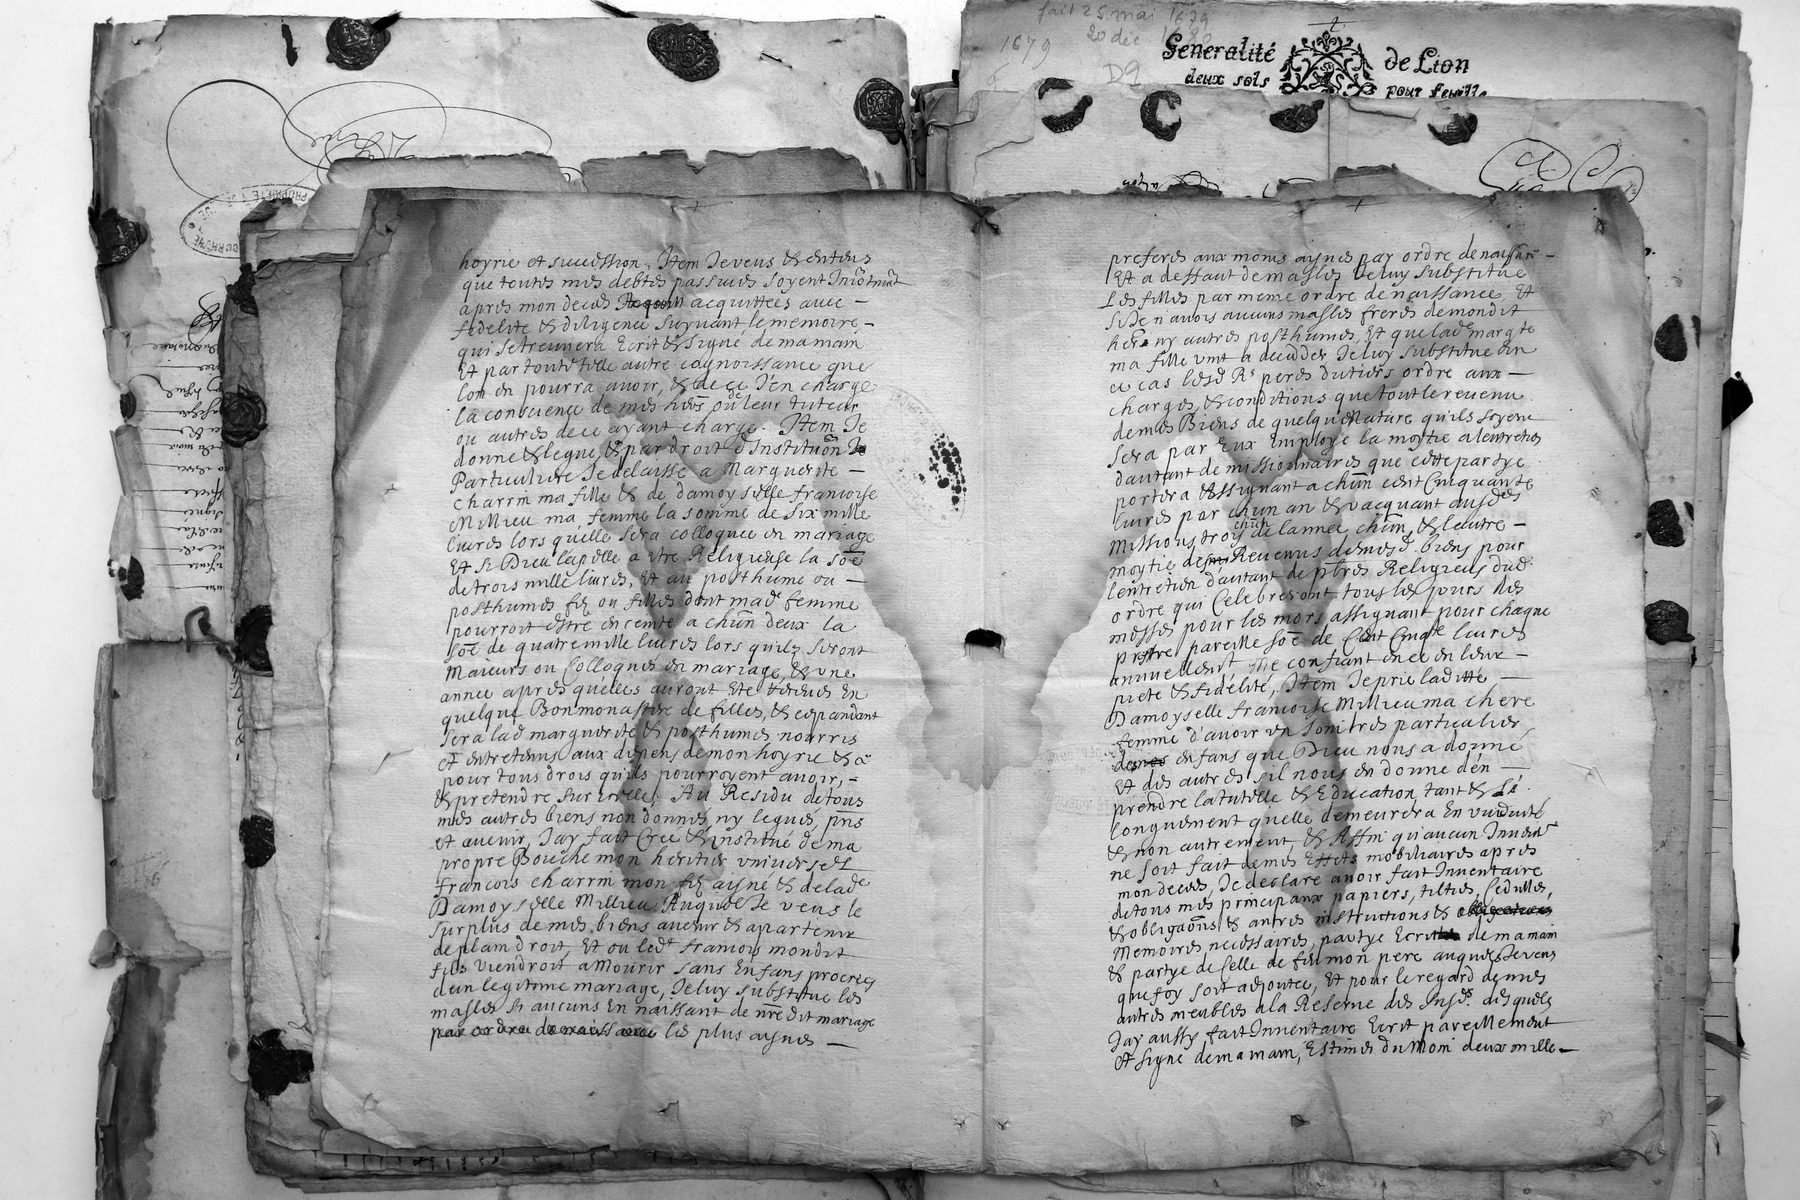 fait 25 mai 1679
1679
20 dec 1680
D9
Generalité de Lion
deux sols pour feuille
hoyrie et succession, Item Je veus & entens
que toutes mes debtes passives soyent
apres mon deces acquittées avec –
fidelité & diligence suyvant le memoire, –
qui se treuvera Ecrit & signé de ma main
Et par toute telle autre cognoissance que
lon en pourra avoir, & de ce J'en charge
la conscience de mes hers ou de leur tuteur
ou autres de ce ayant charge. Item Je
donne & legue, & par droit d'Instituõn
Particuliere Je delaisse a Marguerite –
Charrin ma fille & de damoyselle francoise
Millieu ma femme la somme de six mille
livres lors quelle sera colloquée en mariage
Et si Dieu lapelle a etre Religieuse la soe
de trois mille livres, Et au posthume ou –
posthumes fiz ou filles dont mad femme
pourroit estre enceinte a chũn deux la
soe de quatre mille livres lors quilz seront
Majeurs ou Colloques en mariage, & une
année apres quelles auront ete tenues En
quelque Bon monastere de filles, & cependant
sera lad marguerite & posthumes nourris
et entretenus aux dépens de mon hoyrie & ce
pour tous drois qu'ils pourroyent avoir, =
& pretendre sur icelle. Au Residu de tous
mes autres biens non donnes, ny legues, pñs
et avenir, Jay fait Créé & institué de ma
propre Bouche mon heritier universel
francois charrin mon fiz aisné & de lade
Damoyselle Millieu Auquel Je veus le
surplus de mes biens avenir & apartenir
de plain droit, Et ou ledt francois mondit
fils viendroit a Mourir sans Enfans procreés
d'un legitime mariage, Je luy substitue les
masles si aucuns En naissant de nre dit mariage
par ordre de naissance les plus aisnes –
preferes aux moins aisnes par ordre de naissance –
Et a deffaut de masles Je luy substitue
Les filles par meme ordre de naissance, Et
si Je n'avois aucuns masles freres de mondit
her ny autres posthumes, Et que lade margte
ma fille vint a deceder Je luy substitue en
ce cas lesd Rs peres du tiers ordre aux –
charges, & conditions que tout le revenu
de mes Biens de quelque Nature qu'ils soyent
sera par Eux Employé la moytie a lentretien
dautant de missionnaires que cette partye
portera Assignant a chũn cent Cinquante
livres par chũn an & vacquant ausdes
Missions trois mois de lannee chũn, & lautre –
moytie des Revenus de mesd. biens pour
lentretien d'autant de pbres Religieus dud.
ordre qui Celebreront tous les Jours des
messes pour les mors assignant pour chaque
prestre pareille soe de Cent Cinqte livres
annuellemt Me confiant en ce en leur –
pieté & fidélité, Item Je prie laditte –
Damoyselle francoise Millieu ma chere
femme d'avoir un soin tres particulier
enfans que Dieu nous a donné
Et des autres s'il nous en donne d'en –
prendre la tutelle & Education, tant & si
longuement quelle demeurera En viduité
& non autrement, & Affin qu'aucun Inventre
ne soit fait de mes Effets mobiliaires apres
mon deces, Je declare avoir fait Inventaire
de tous mes principaux papiers, tiltres, Cedulles,
& obligaõns & autres instructions &
Memoires necessaires, partye Ecrit de ma main
& partye de Celle de feu mon pere auquel Je veus
que foy soit adjoutée, Et pour le regard de mes
autres meubles a la Reserve des Insds desquels
Jay aussy fait Inventaire Ecrit pareillement
& signé de ma main, Estimes du Moin deux mille –